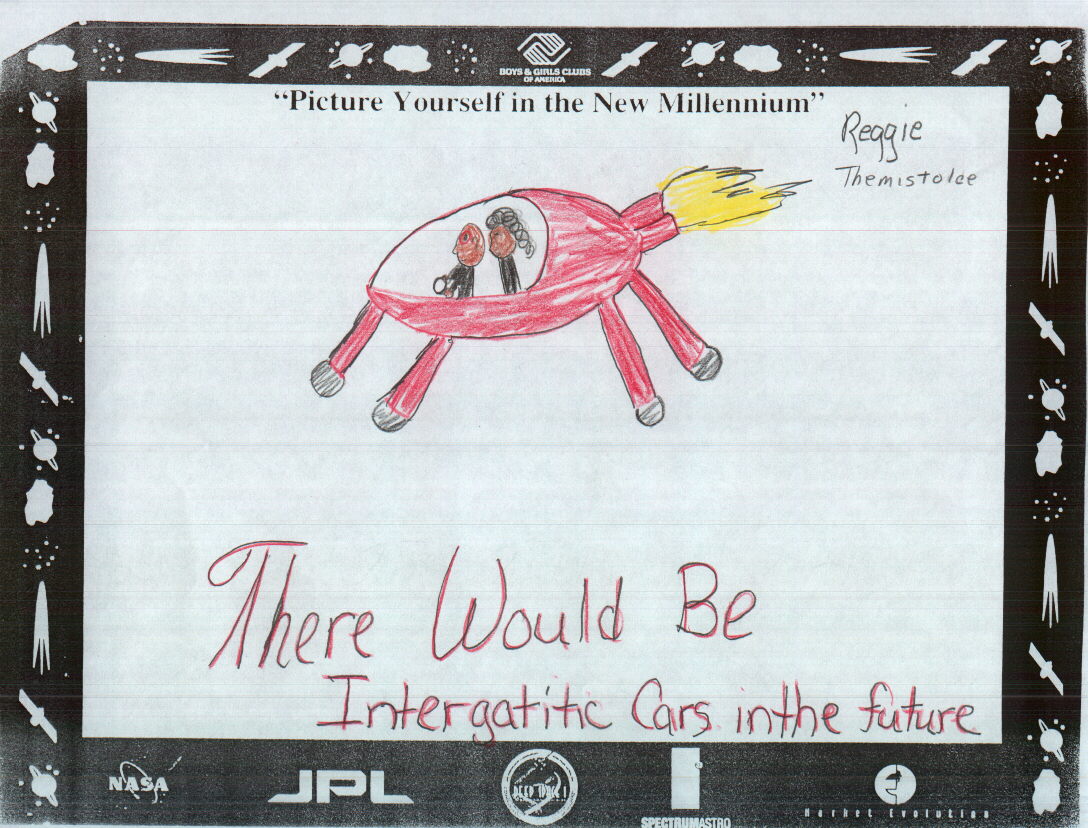 BOYS & GIRLS CLUBS
OF AMERICA
“Picture Yourself in the New Millennium”
Reggie
Themistolee
There Would Be
Intergatitic Cars inthe future
NASA
JPL
DEEP SPACE 1
SPECTRUMASTRO
Market Evolution